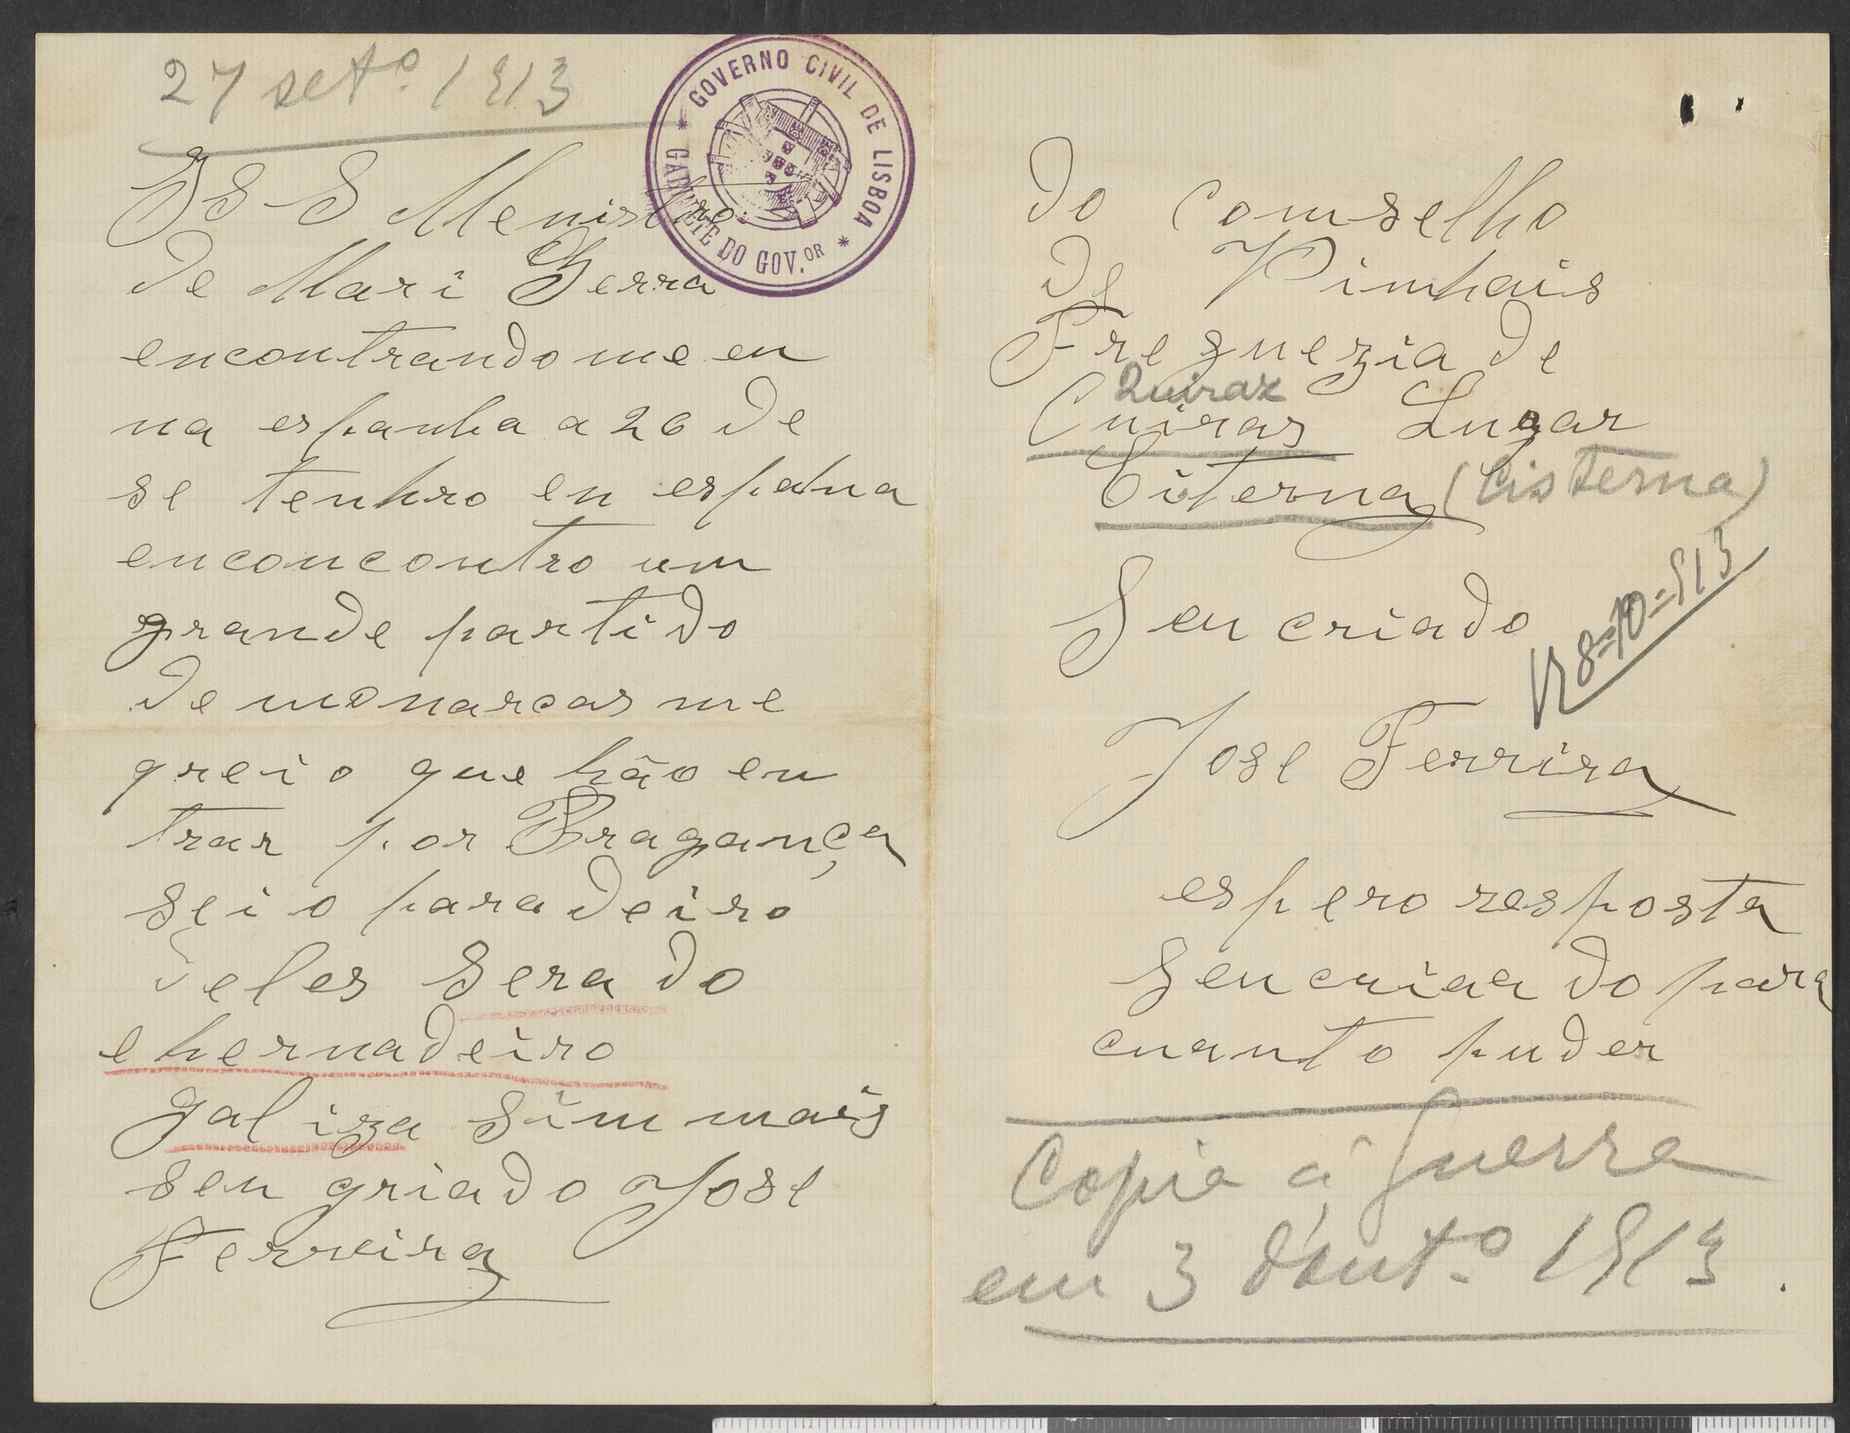 27 setº 1913
GOVERNO CIVIL DE LISBOA
GABINETE DO GOV.OR
S S Menistro
de Mari Gerra
encontrandome en
na espanha a 26 de
se tenbro en espahna
enconcontro um
grande partido
de monarcas me
greio que hão en
trar por Bragança
sei o paradeiro
deles Sera do
e hernadeiro
galiza sim mais
seu griado Jose
Ferreira
do comselho
de Vimhais
Freguezia de
Quiraz
Cuiras Lugar
Citerna (Cisterna)
Seu criado
8=10=913
Jose Ferrira
espero resposta
Seu criaado para
cuanto puder
Copia á Guerra
em 3 d'outº 1913.